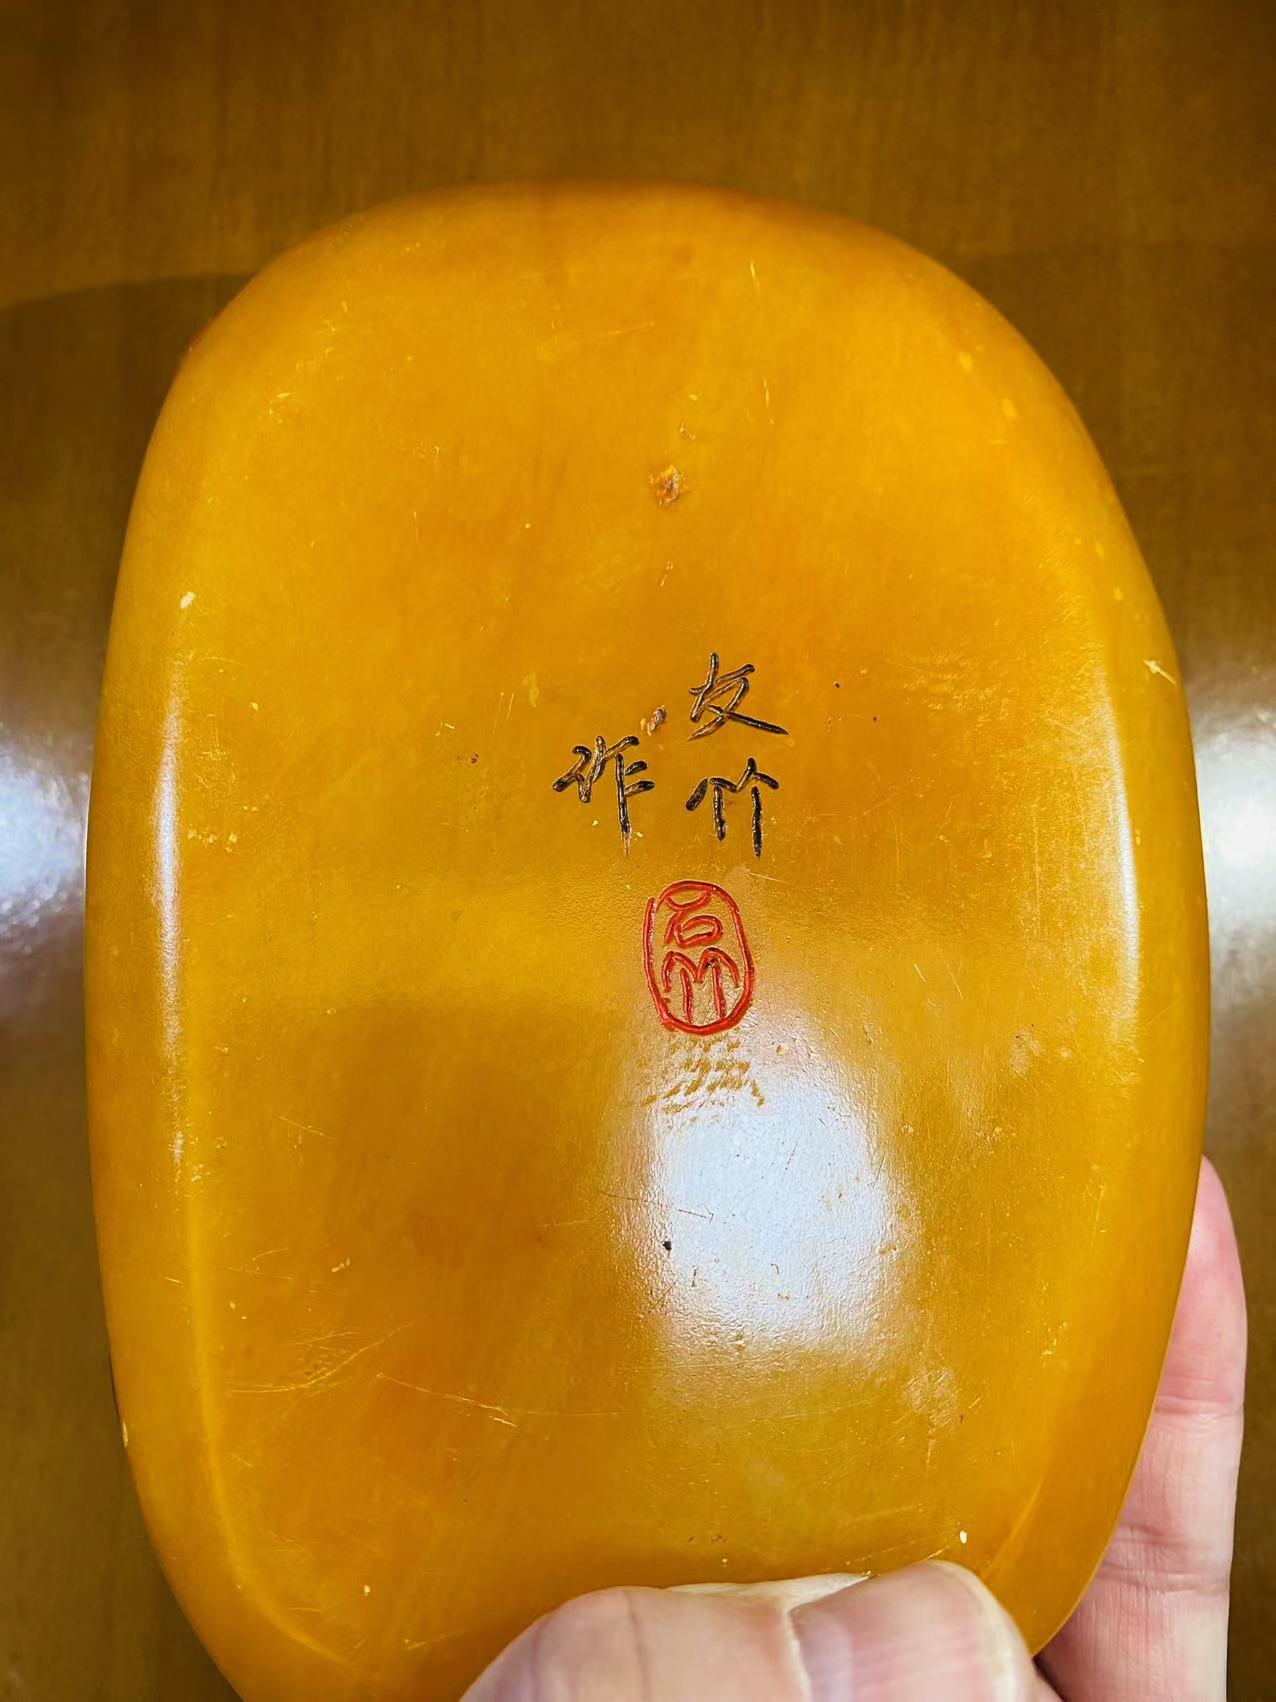 友竹
作
石竹